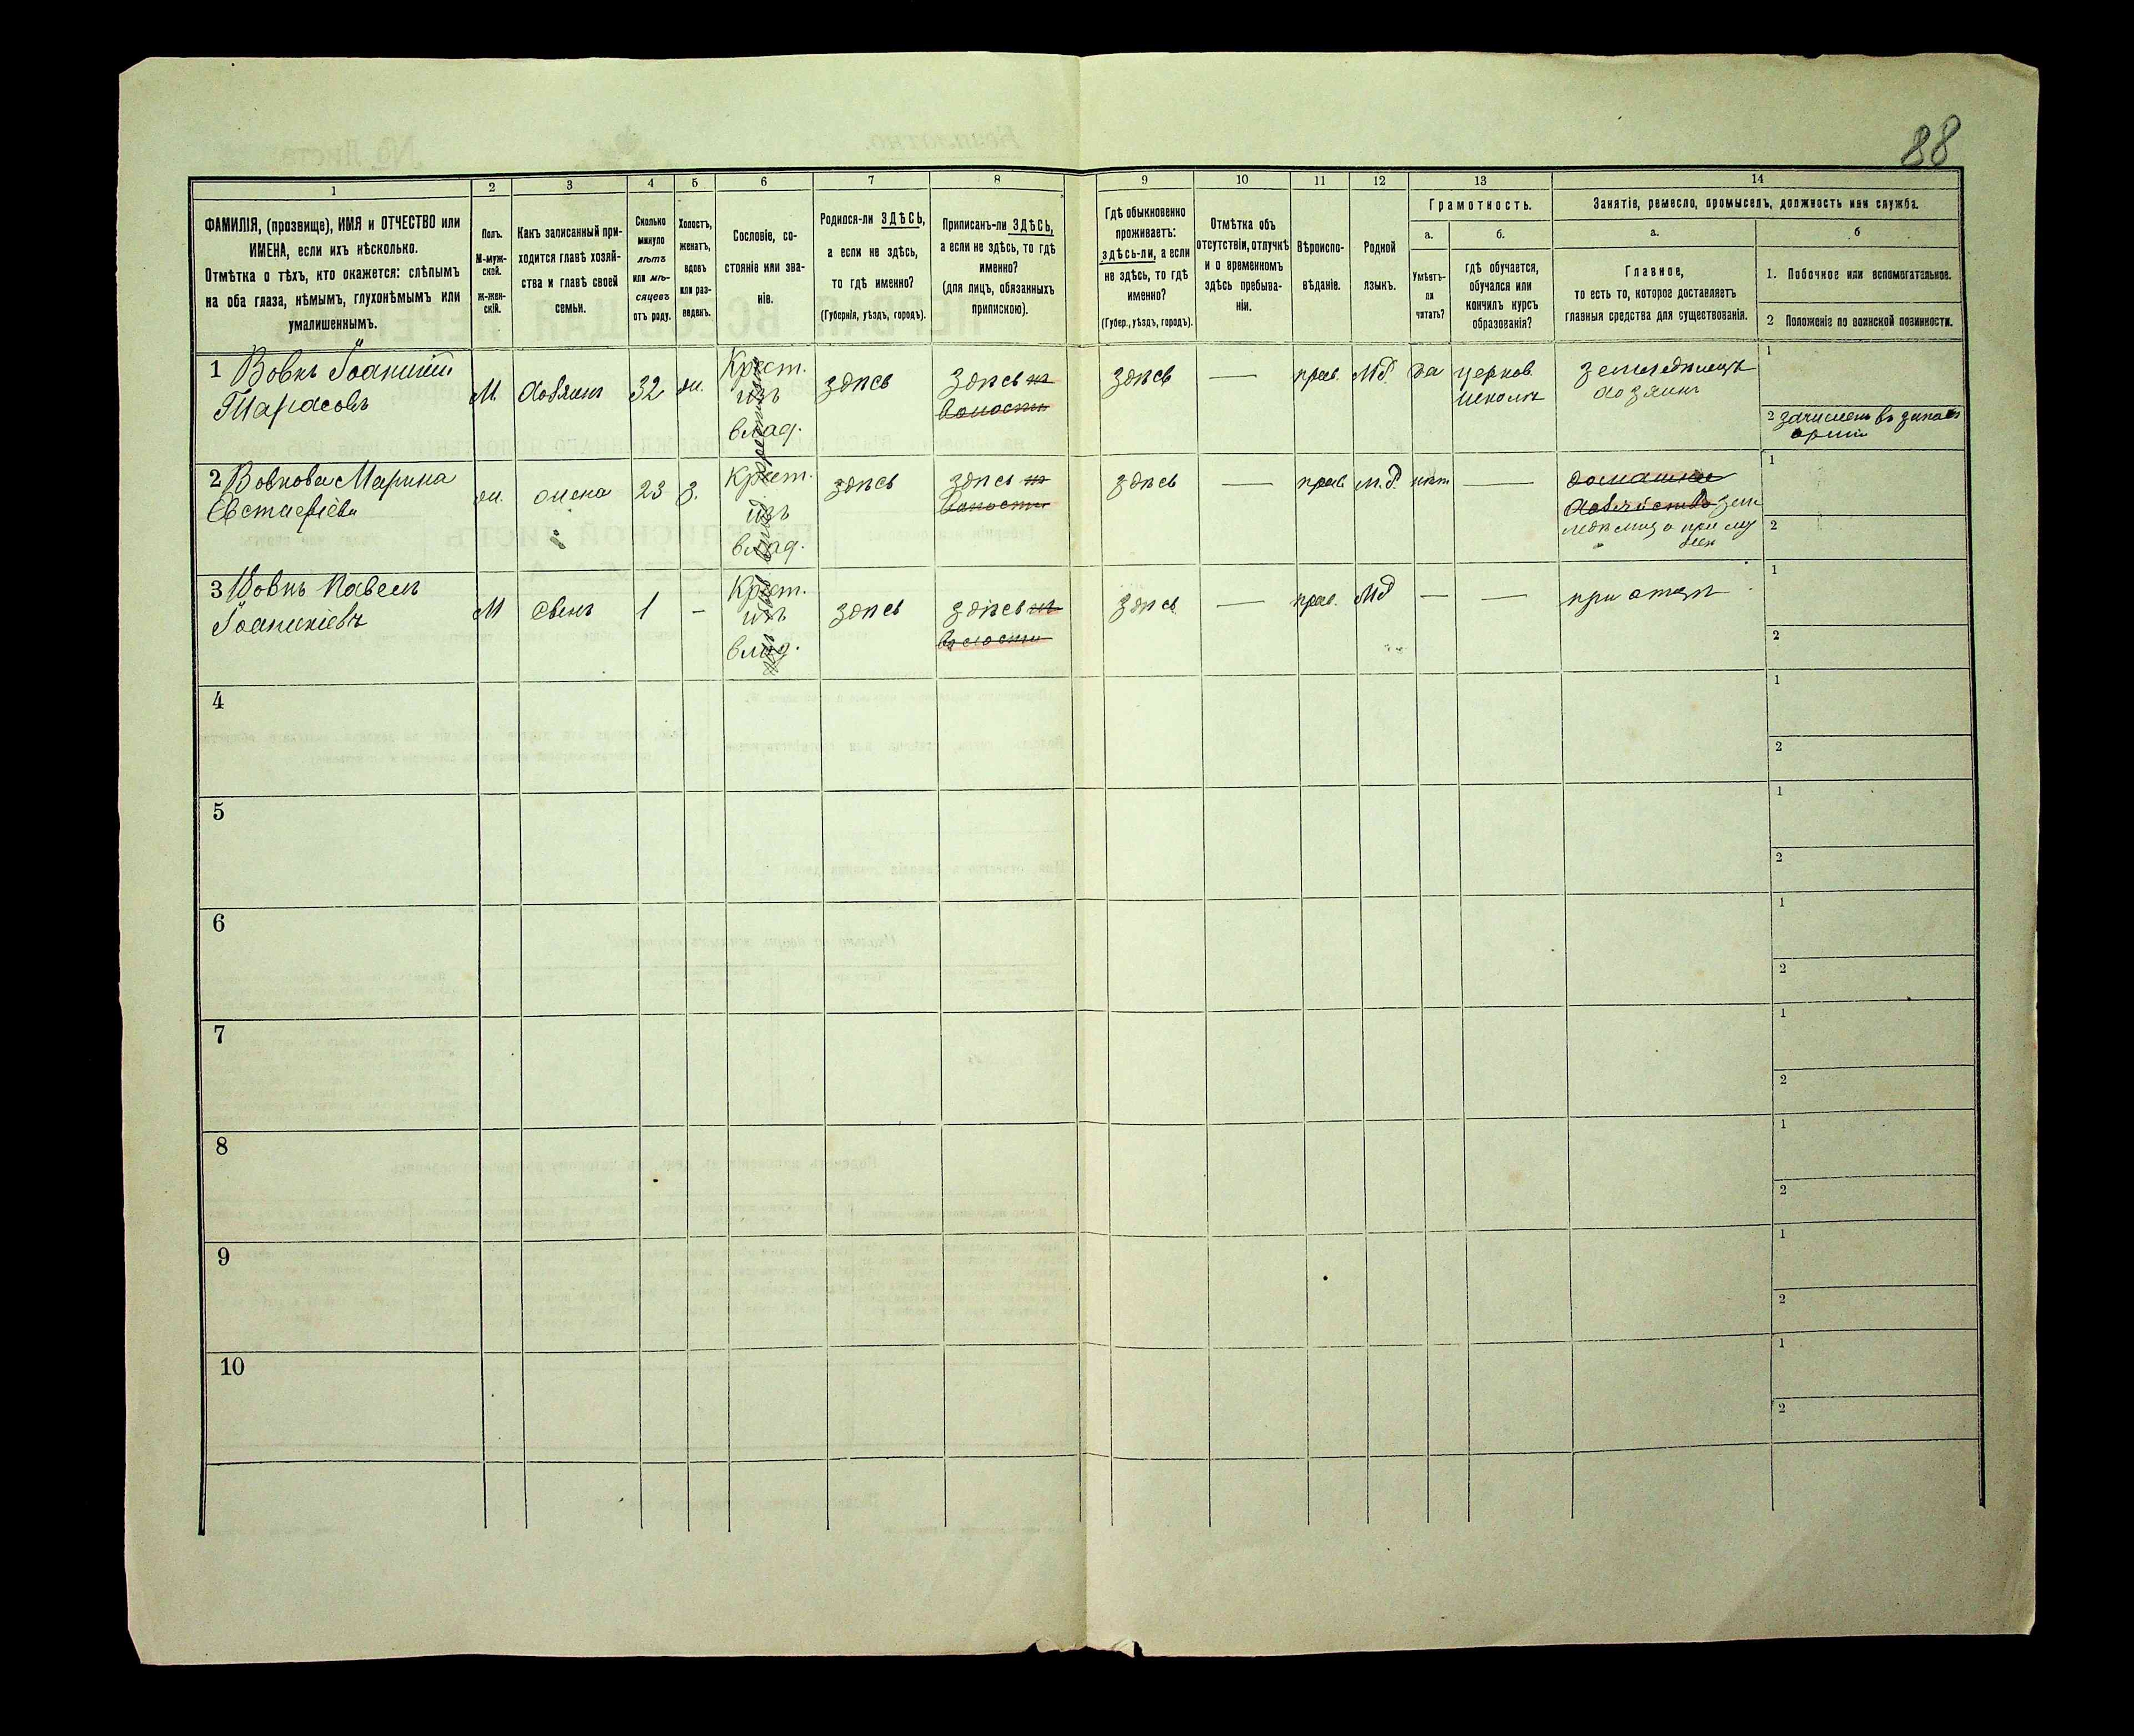 88
1
2
3
4
5
6
7
8
9
10
11
12
13
14
ФАМИЛІЯ, (прозвище), ИМЯ и ОТЧЕСТВО или
ИМЕНА, если ихъ нѣсколько.
Отмѣтка о тѣхъ, кто окажется: слѣпымъ
на оба глаза, нѣмымъ, глухонѣмымъ или
умалишеннымъ.
Полъ.
М-муж-
ской.
ж-жен-
скій.
Какъ записанный при-
ходится главѣ хозяй-
ства и главѣ своей
семьи.
Сколько
минуло
лѣтъ
или мѣ-
сяцевъ
отъ роду.
Холостъ,
женатъ,
вдовъ
или раз-
веденъ.
Сословіе, со-
стояніе или зва-
ніе.
Родился-ли ЗДѢСЬ,
а если не здѣсь,
то гдѣ именно?
(Губернія, уѣздъ, городъ).
Приписанъ-ли ЗДѢСЬ,
а если не здѣсь, то гдѣ
именно?
(для лицъ, обязанныхъ
припискою).
Гдѣ обыкновенно
проживаетъ:
здѣсь-ли, а если
не здѣсь, то гдѣ
именно?
(Губер., уѣздъ, городъ).
Отмѣтка объ
отсутствіи, отлучкѣ
и о временномъ
здѣсь пребыва-
ніи.
Вѣроиспо-
вѣданіе.
Родной
языкъ.
Грамотность.
а.
Умѣетъ-
ли
читать?
б.
гдѣ обучается,
обучался или
кончилъ курсъ
образованія?
Занятіе, ремесло, промыселъ, должность или служба.
а.
Главное,
то есть то, которое доставляетъ
главныя средства для существованія.
б
1. Побочное или вспомогательное.
2 Положеніе по воинской повинности.
1 Вовкъ Іоаникій
Тарасовъ
М
хозяинъ
32
ж.
Крест.
изъ
влад.
здѣсь
здѣсь въ
волости
здѣсь
—
прав.
Мб.
да
церков
школѣ
земледѣлецъ
хозяинъ
1
2 зачисленъ въ запасъ
арміи
2 Вовкова Марина
Евстафіева
ж.
жена
23
з.
Крест.
изъ
влад.
здѣсь
здѣсь въ
волости
здѣсь
—
прав.
м.б.
нѣт
—
домашнее
хозяйство зем
ледѣлица при му
жѣ
1
2
3 Вовкъ Павелъ
Іоаникіевъ
М
сынъ
1
—
Крест.
изъ
влад.
здѣсь
здѣсь въ
волости
здѣсь
—
прав.
Мб
—
—
при отцѣ
1
2
4
1
2
5
1
2
6
1
2
7
1
2
8
1
2
9
1
2
10
1
2